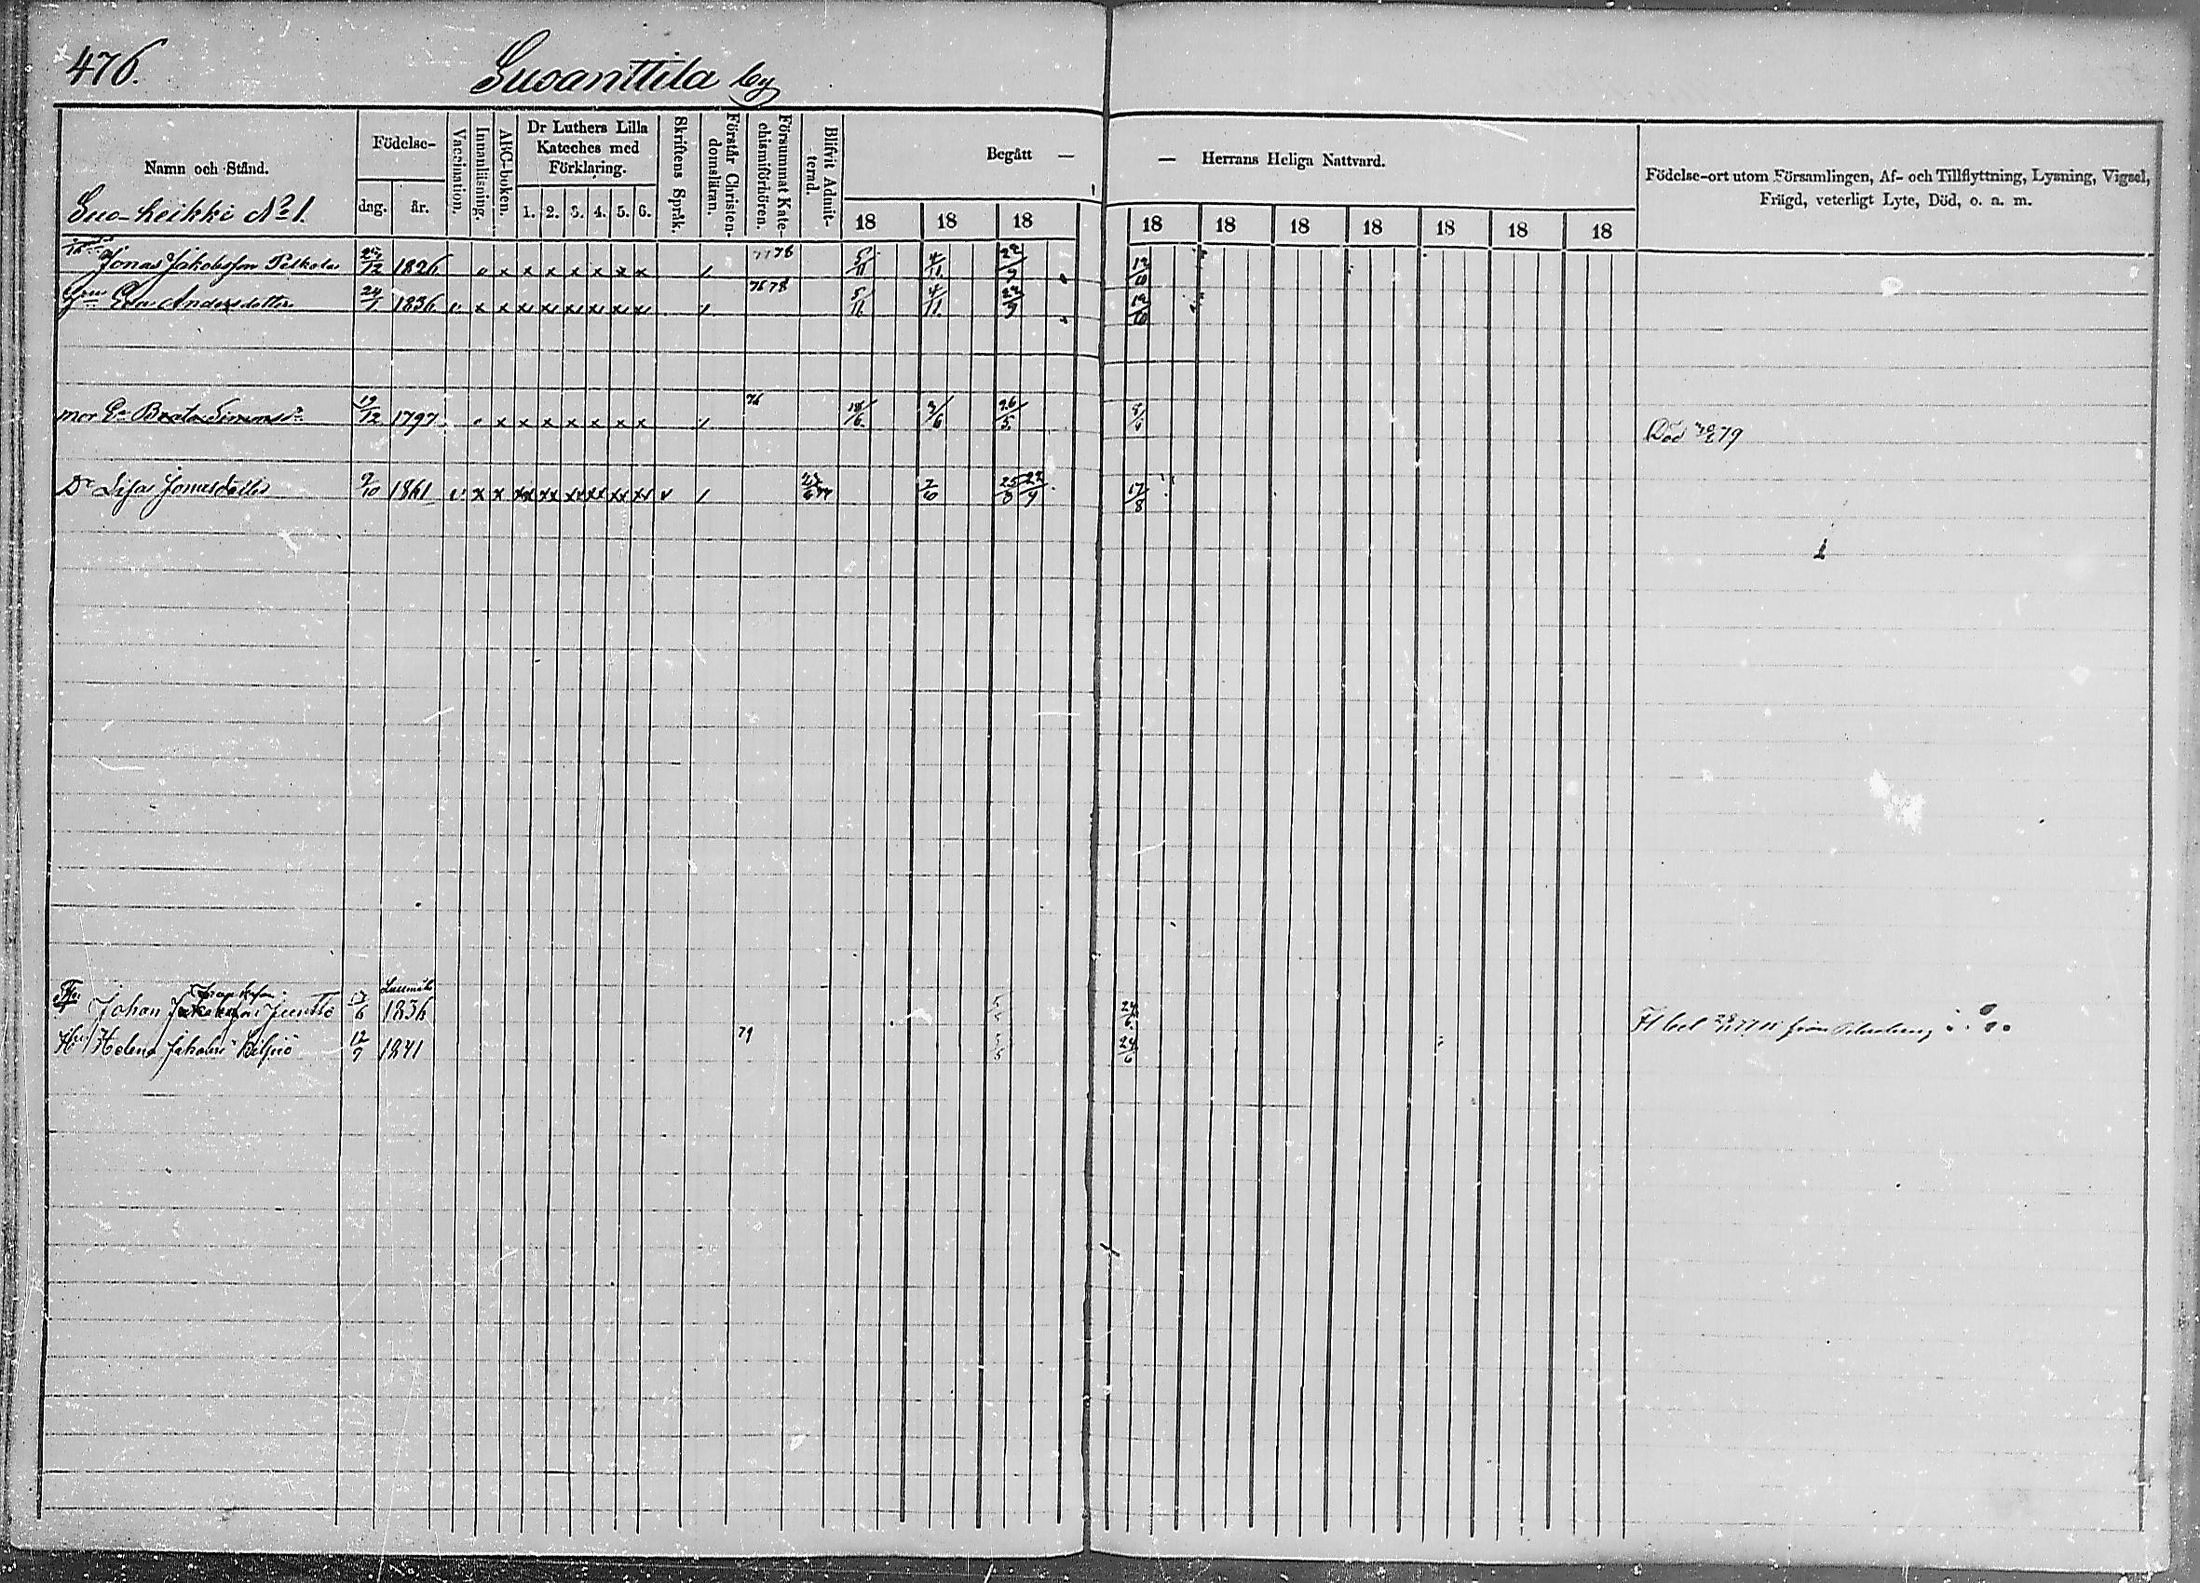 476.
Suoanttila by
Namn och Stånd.
Födelse-
dag. år.
Vaccination.
Innanläsning.
ABC-boken.
Dr Luthers Lilla
Kateches med
Förklaring.
1. 2. 3. 4. 5. 6.
Skriftens Språk.
Förstår Christen-
domsläran.
Försummat Kate-
chismiförhören.
Blifvit Admit-
terad.
Begått —
— Herrans Heliga Nattvard.
18 18 18 18 18 18 18 18 18 18
Födelse-ort utom Församlingen, Af- och Tillflyttning, Lysning, Vigsel,
Frägd, veterligt Lyte, Död, o. a. m.
Suo-heikki No 1.
Jonas Jakobsson 1826 x x x x x x x 76 5/11 4/11 22/9 12/10
Eva Andersdotter 24/1 1836 x x x x x x x x 76 78 5/11 4/11 22/9 12/10
mor Beata Simonsd 19/12 1797 x x x x x x x 76 3/6 26/5 Död 79
Dr Lisa Jonasdotter 9/10 1861 x x xx xx xx xx xx xx 22/9 17/8
Johan Juntto 1836 24/6
Helena Jakobsd 12/9 1841 79 24/6 från